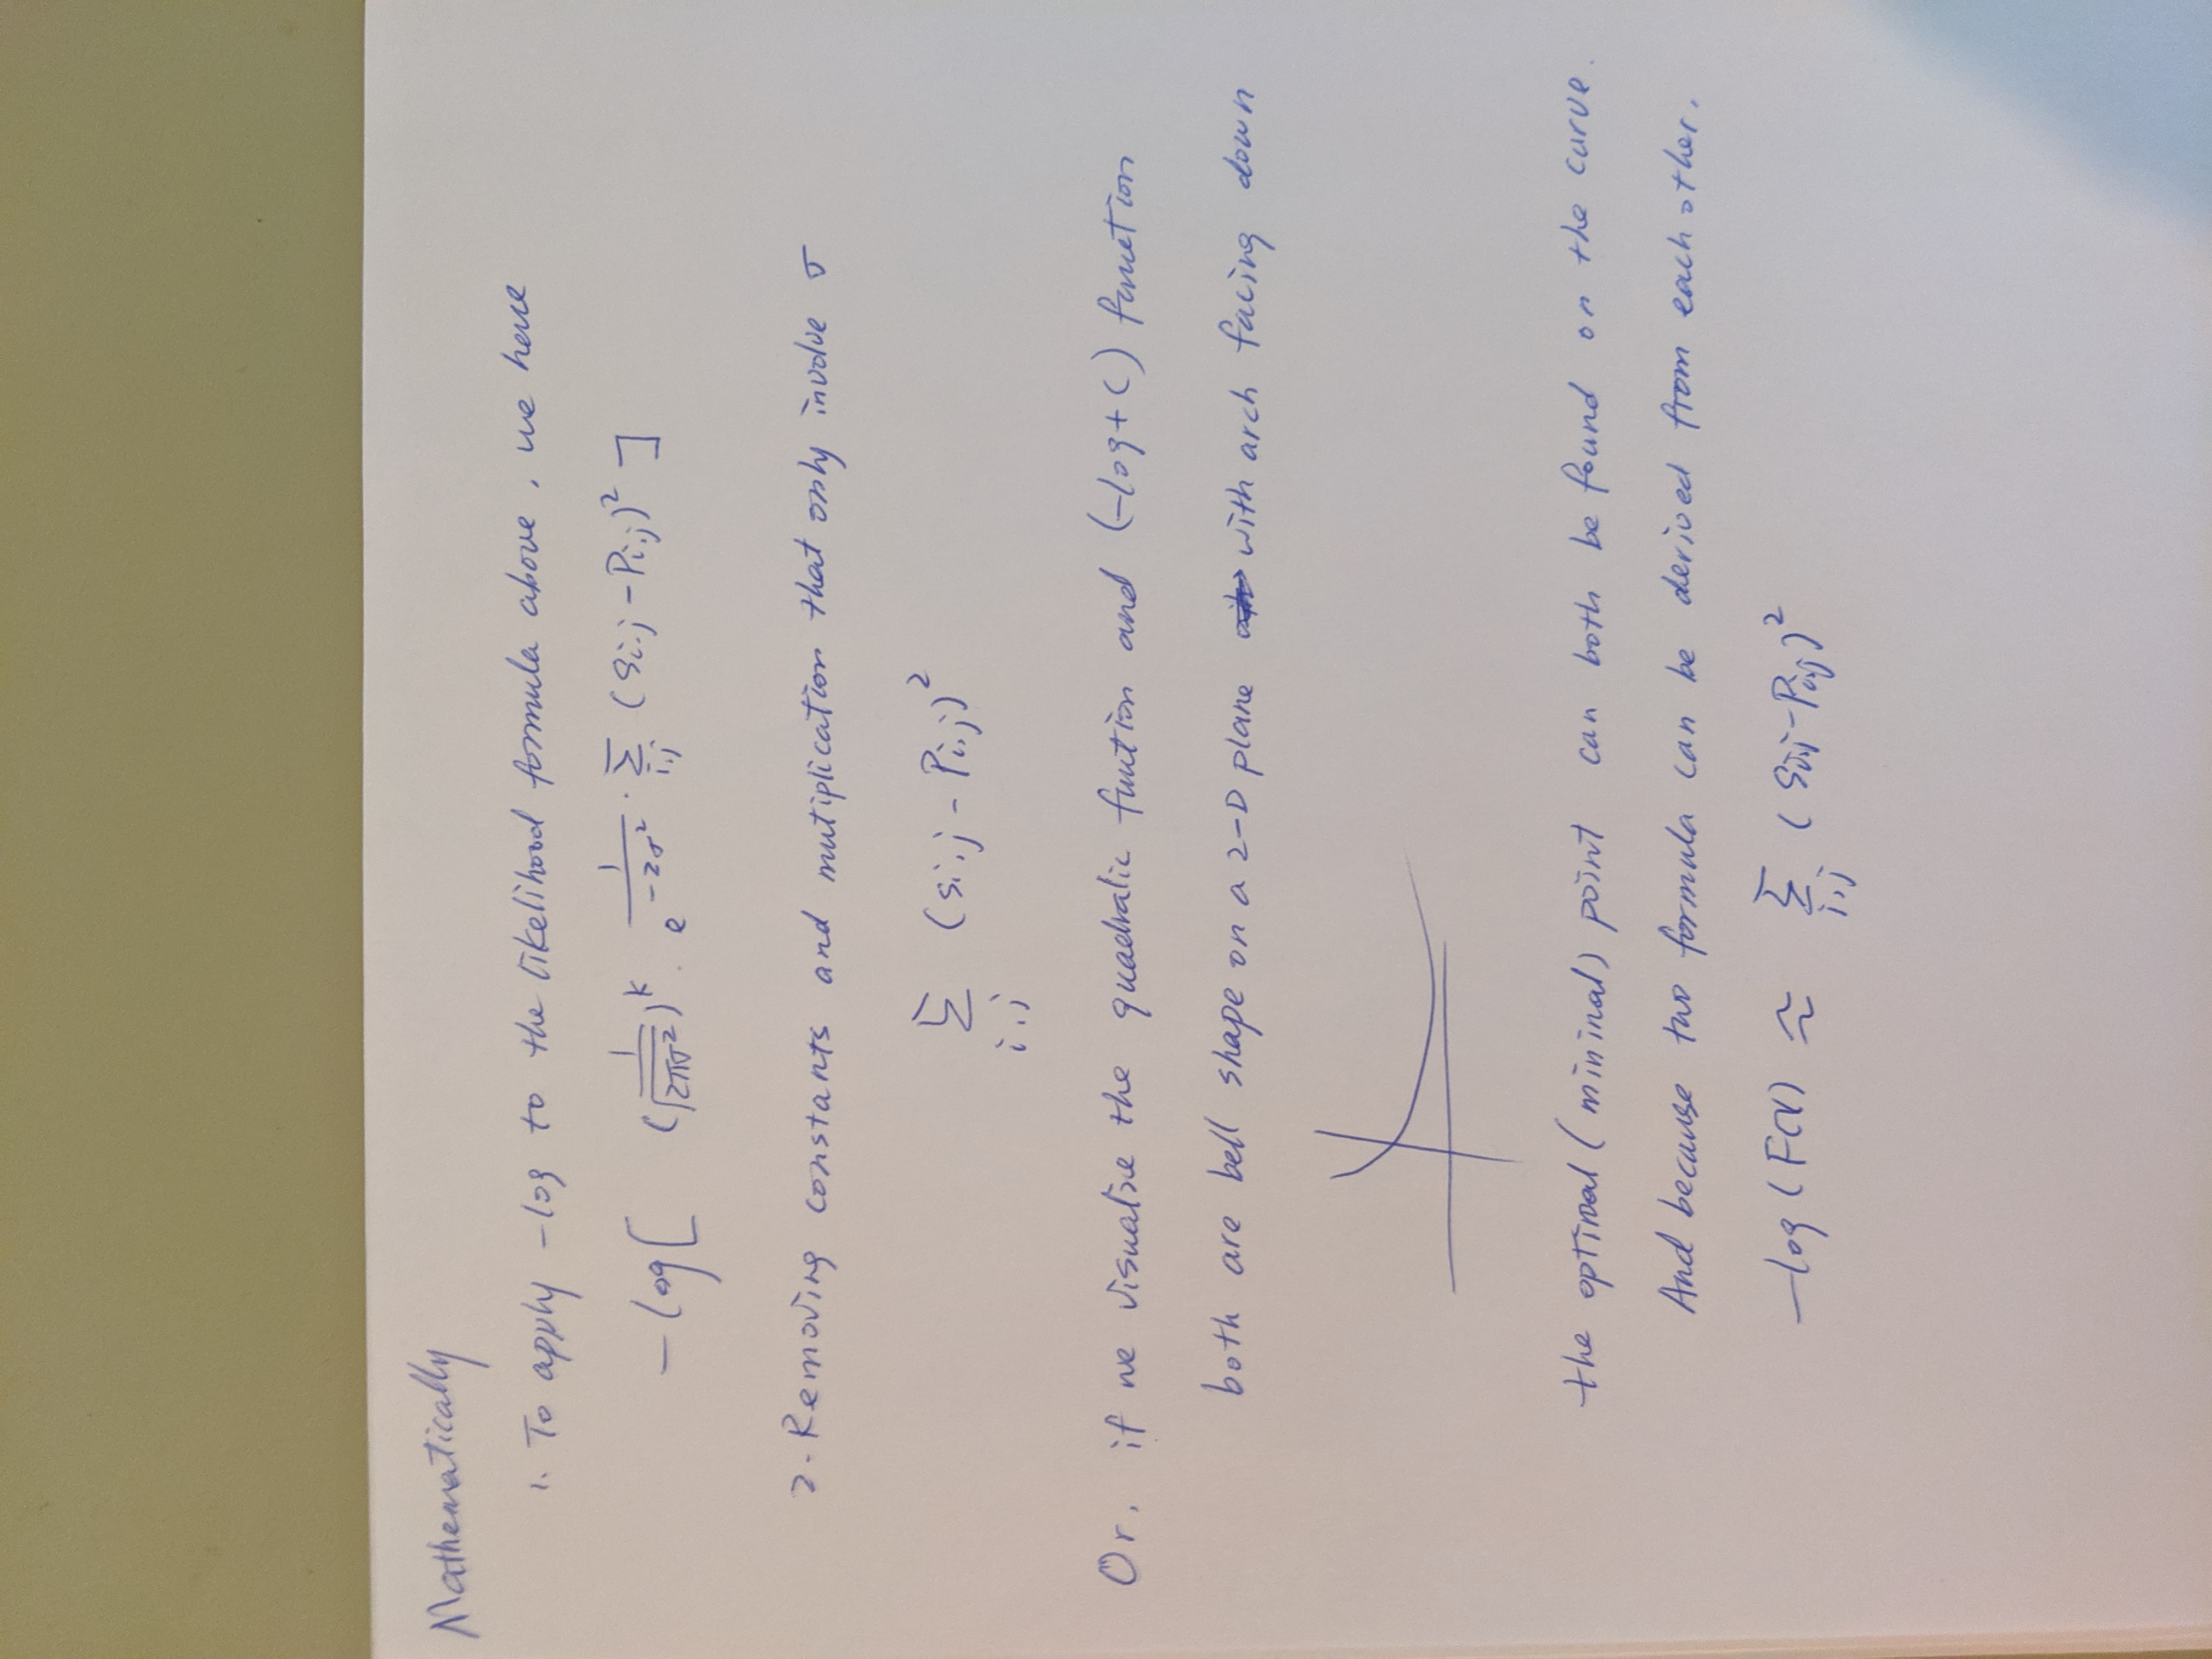 Mathematically
1. To apply -log to the likelihood formula above, we have
-log[ (1/√(2πσ²))^k · e^(1/(-2σ²) · Σ_{i,j} (Si,j - Pi,j)²) ]
2. Removing constants and mutiplication that only involve σ
Σ_{i,j} (Si,j - Pi,j)²
Or, if we visualize the quadralic funtion and (-log+C) function
both are bell shape on a 2-D plane with arch facing down
the optimal (minimal) point can both be found on the curve.
And because two formula can be derived from each other,
-log(F(x)) ≈ Σ_{i,j} (Si,j - Pi,j)²